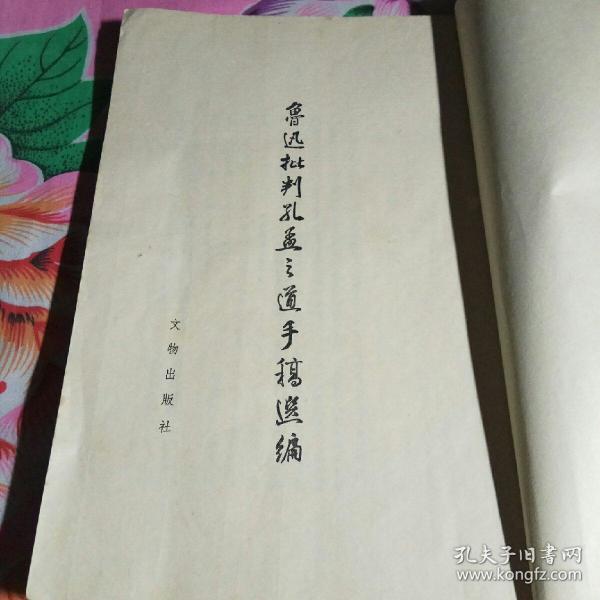 魯迅批判孔孟之道手稿选编
文物出版社
孔夫子旧书网
www.kongfz.com